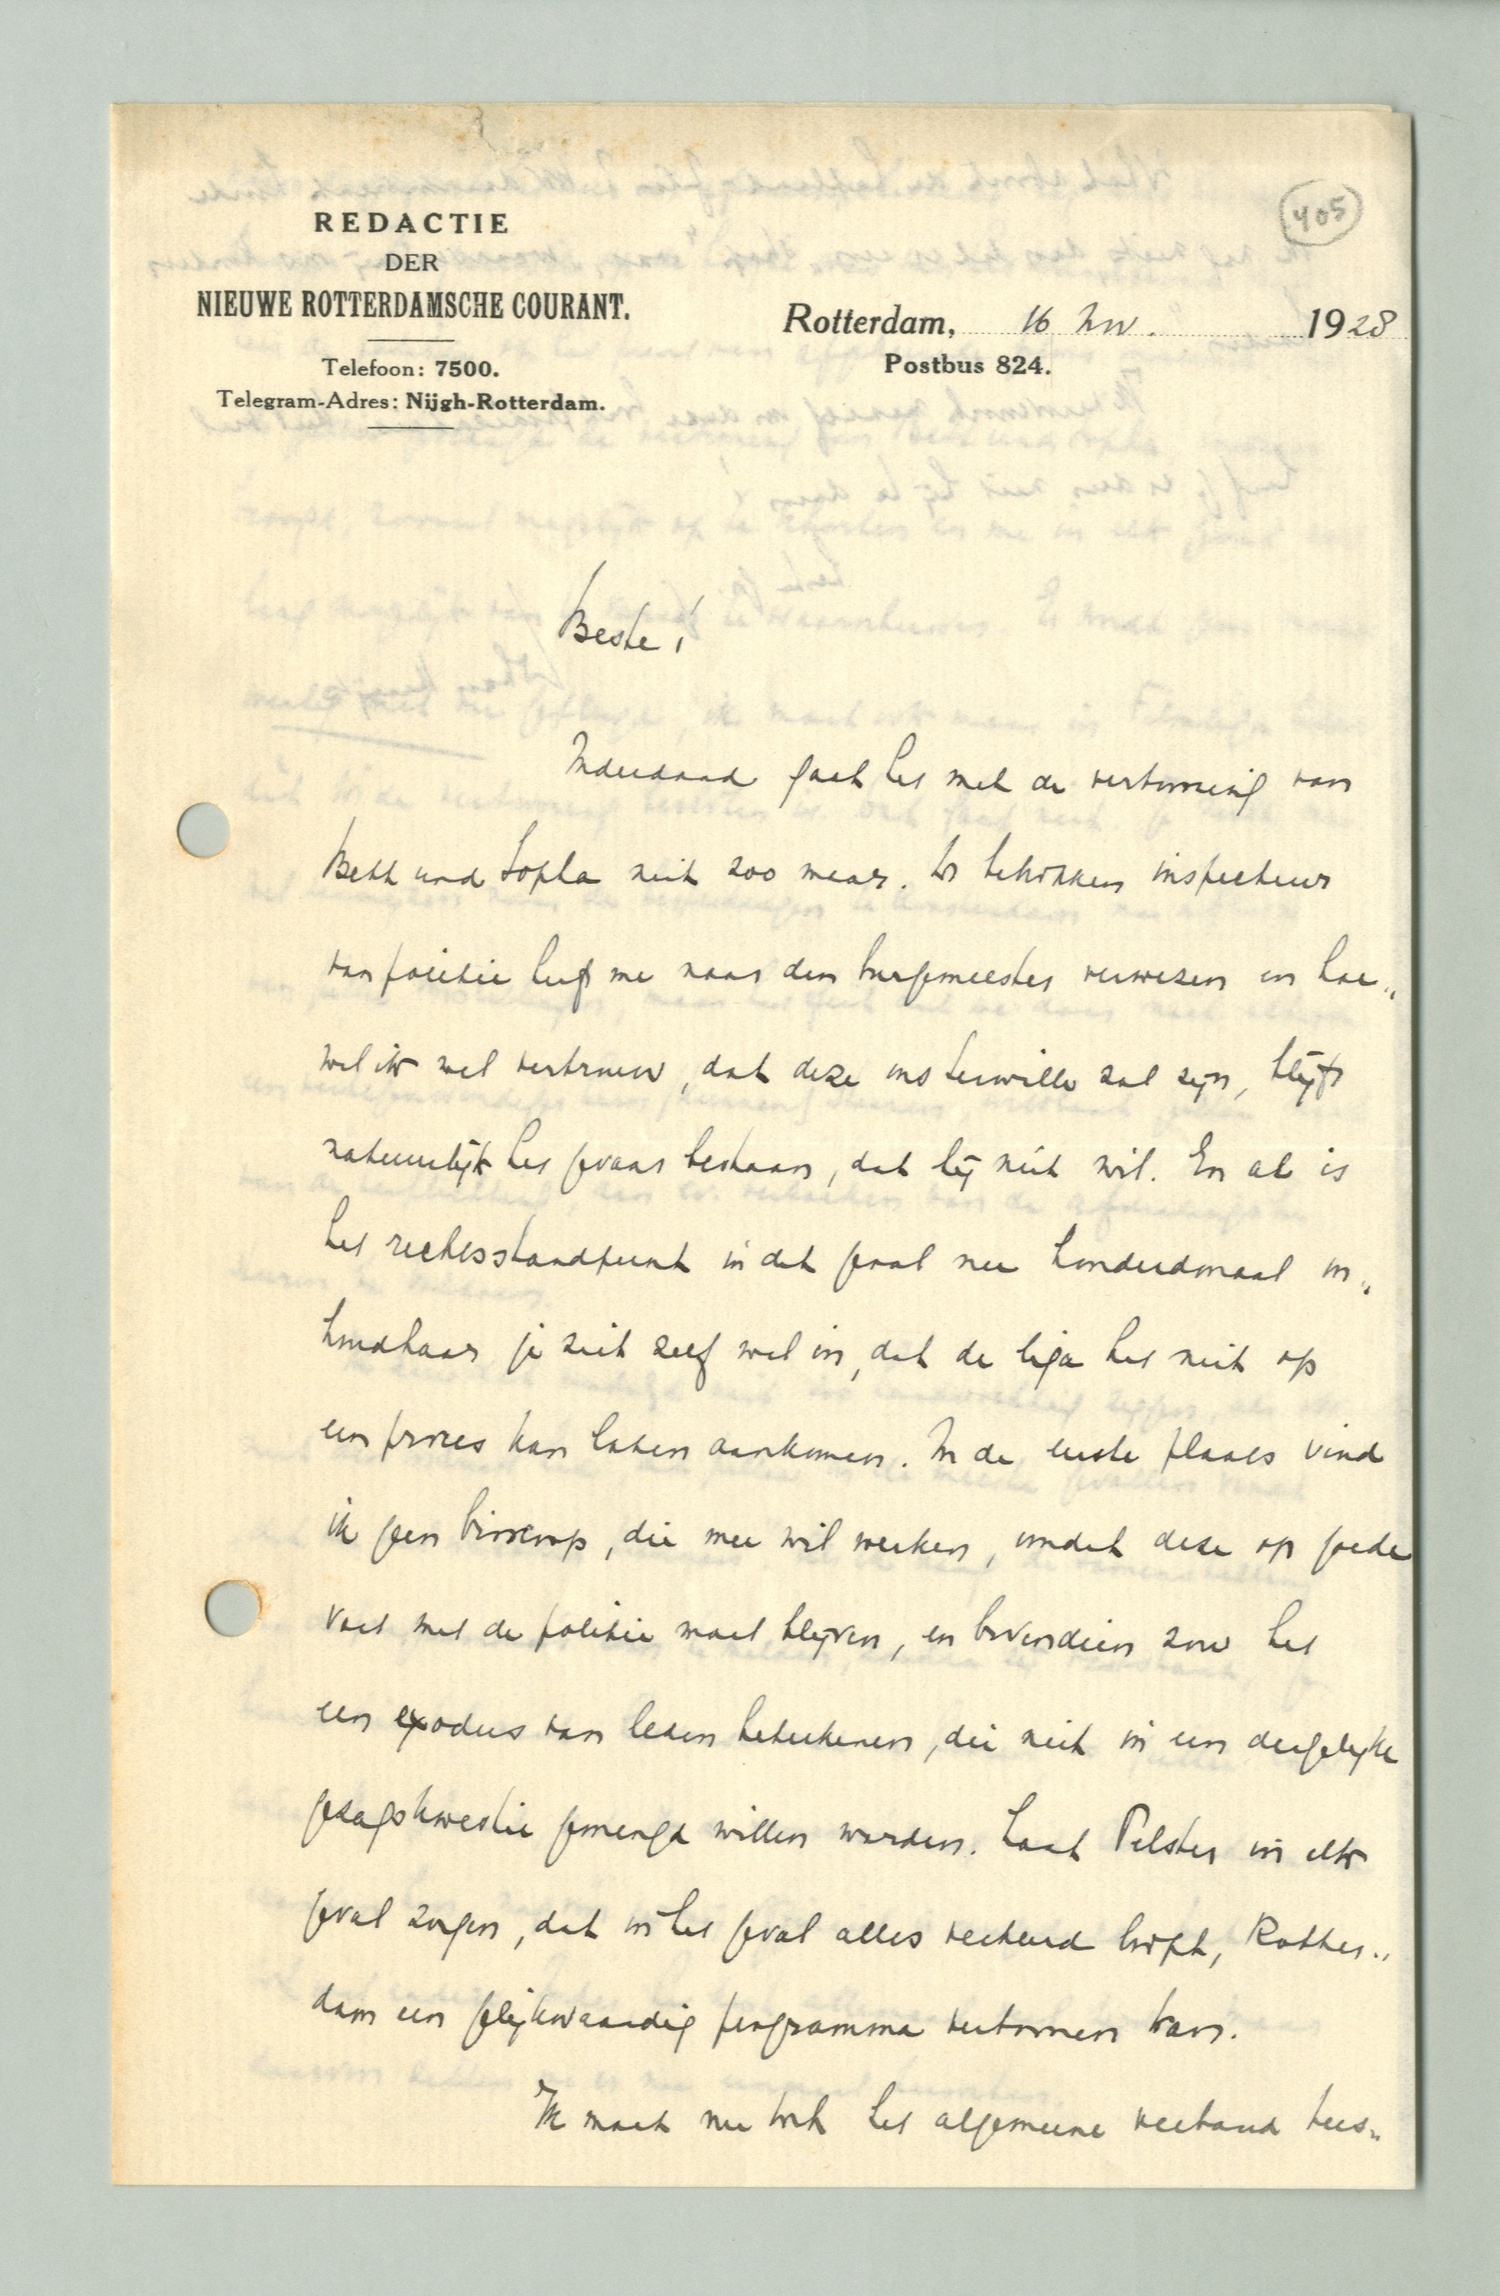 405
REDACTIE
DER
NIEUWE ROTTERDAMSCHE COURANT.
Telefoon: 7500.
Telegram-Adres: Nijgh-Rotterdam.
Rotterdam, 16 Nov. 1928
Postbus 824.
Beste!
Inderdaad gaat het met de vertooning van
Bett und Sopha niet zoo maar. De betrokken inspecteur
van politie heeft me naar den burgemeester verwezen en hoe„
wel ik wel vertrouw, dat deze ons terwille zal zijn, blijft
natuurlijk het gevaar bestaan, dat hij niet wil. En al is
het rechtsstandpunt in dat geval nu honderdmaal on„
houdbaar je ziet zelf wel in, dat de liga het niet op
een proces kan laten aankomen. In de eerste plaats vind
ik geen bioscoop, die mee wil werken, omdat deze op goede
voet met de politie moet blijven, en bovendien zou het
een exodus van leden beteekenen, die niet in een dergelijke
gezagskwestie gemengd willen worden. Laat Pelster in elk
geval zorgen, dat in het geval alles verkeerd loopt, Rotter„
dam een gelijkwaardig programma vertoonen kan.
Ik moet nu het algemeene verband